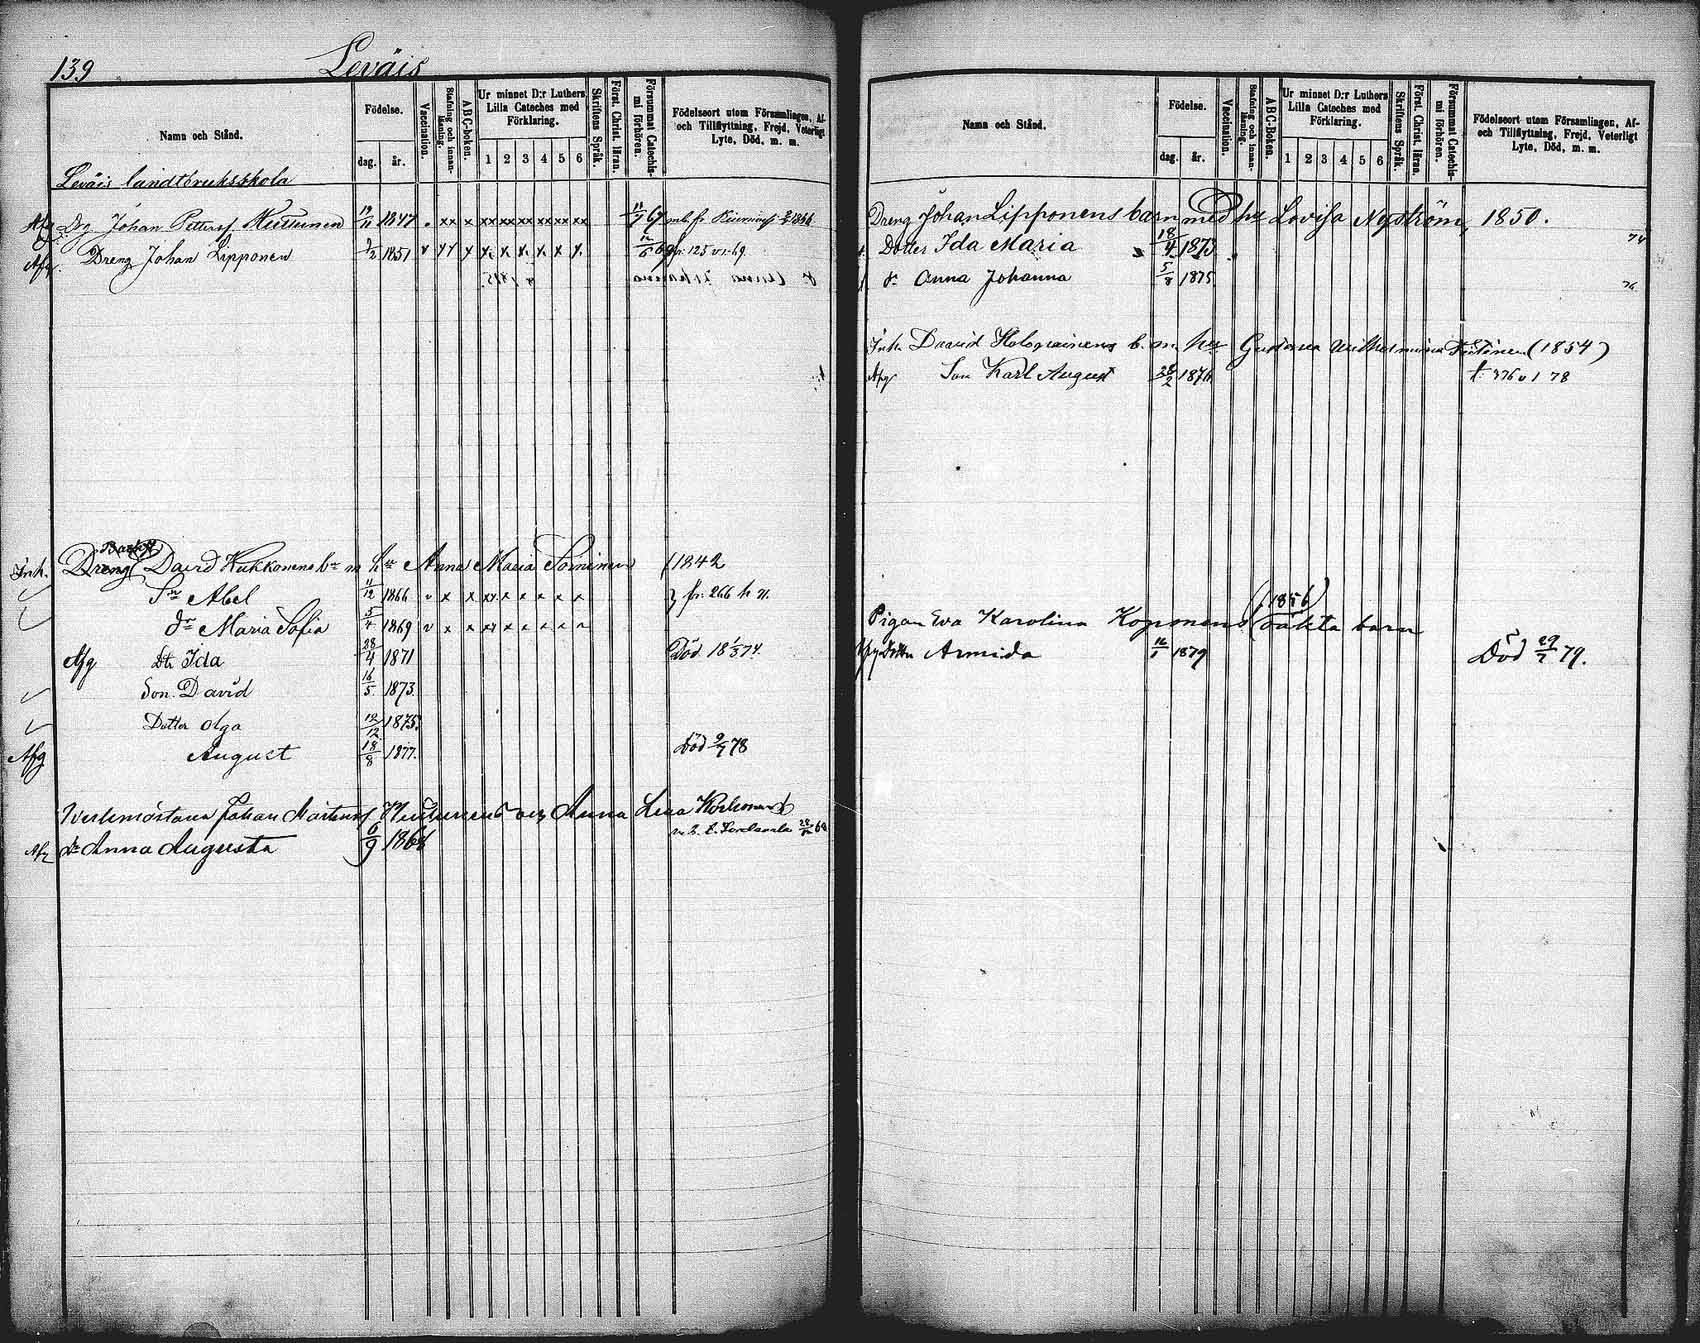 139
Leväis
Namn och Stånd.
Födelse.
dag.
år.
Vaccination.
Stafning och innan-läsning.
ABC-boken.
Ur minnet D:r Luthers Lilla Cateches med Förklaring.
1 2 3 4 5 6
Skriftens Språk.
Först. Christ. läran.
Försummat Catechis-mi förhören.
Födelseort utom Församlingen, Af- och Tillflyttning, Frejd, Veterligt Lyte, Död, m. m.
Leväis landtbruksskola
Johan Petterss 19/11 1847
Afg. Dreng Johan Lipponen 3/2 1851 fr. 125 v. 1. 69.
Inh. Dreng David Kukkonens bn m hu Anna Maria (1842
Sn Abel 11/12 1866 fr. 266
dr Maria Sofia 5/4 1869
Afg Dtr Ida 28/4 1871 Död 18 1/3 74.
Son David 16/5 1873.
Dotter Olga 19/12 1875.
Afg August 18/8 1877. Död 9/7 78
Johan Mårtenss Anna Lena
Afg dr Anna Augusta 6/9 1868
Namn och Stånd.
Födelse.
dag.
år.
Vaccination.
Stafning och innan-läsning.
ABC-Boken.
Ur minnet D:r Luthers Lilla Cateches med Förklaring.
1 2 3 4 5 6
Skriftens Språk.
Först. Christ. läran.
Försummat Catechis-mi förhören.
Födelseort utom Församlingen, Af- och Tillflyttning, Frejd, Veterligt Lyte, Död, m. m.
Dreng Johan Lipponens barn med hu Lovisa Nyström, 1850.
Dotter Ida Maria 18/4 1873 74
dr Anna Johanna 5/8 1875 76
Inh. David Holopainens b. m. hu Gustava Wilhelmina (1854)
Afg Son Karl August 28/2 1876 f. 376 v 1 78
Pigan Eva Karolina Koponens (1856) oäkta barn
Afg Dotter Armida 1879 Död 29/7 79.